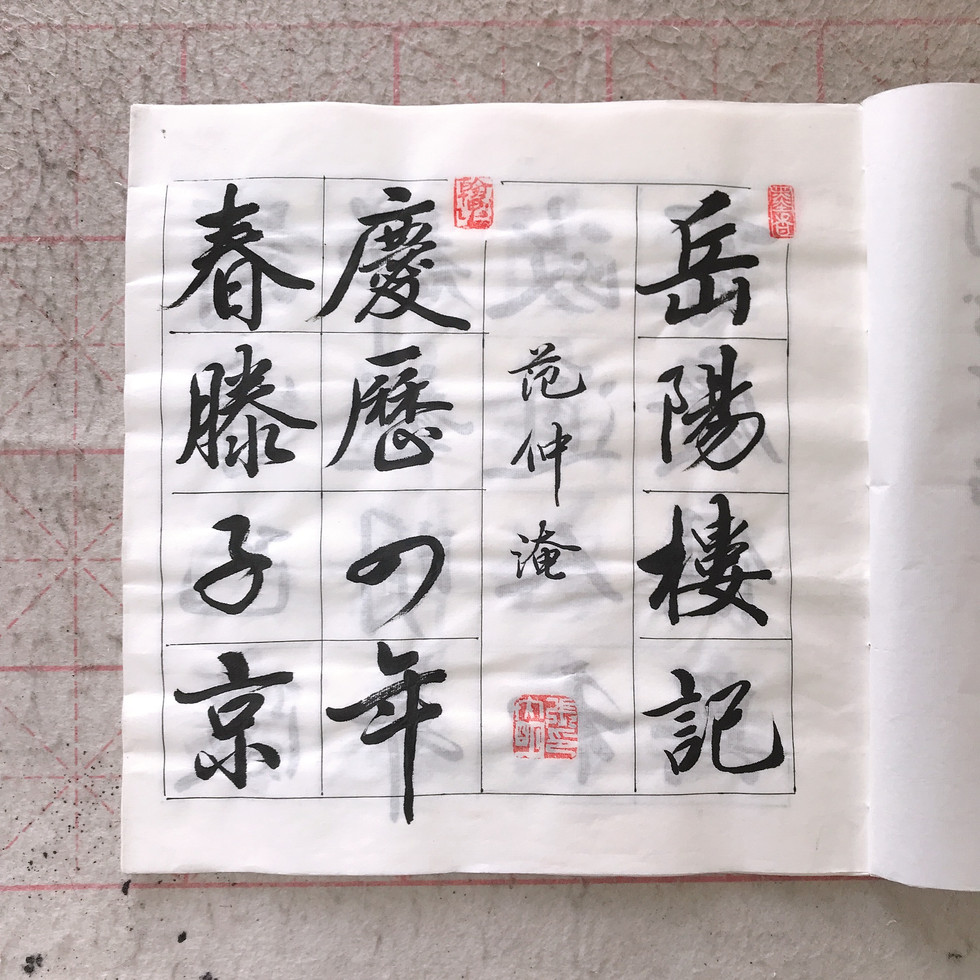 岳陽樓記
范仲淹
慶歷四年
春滕子京